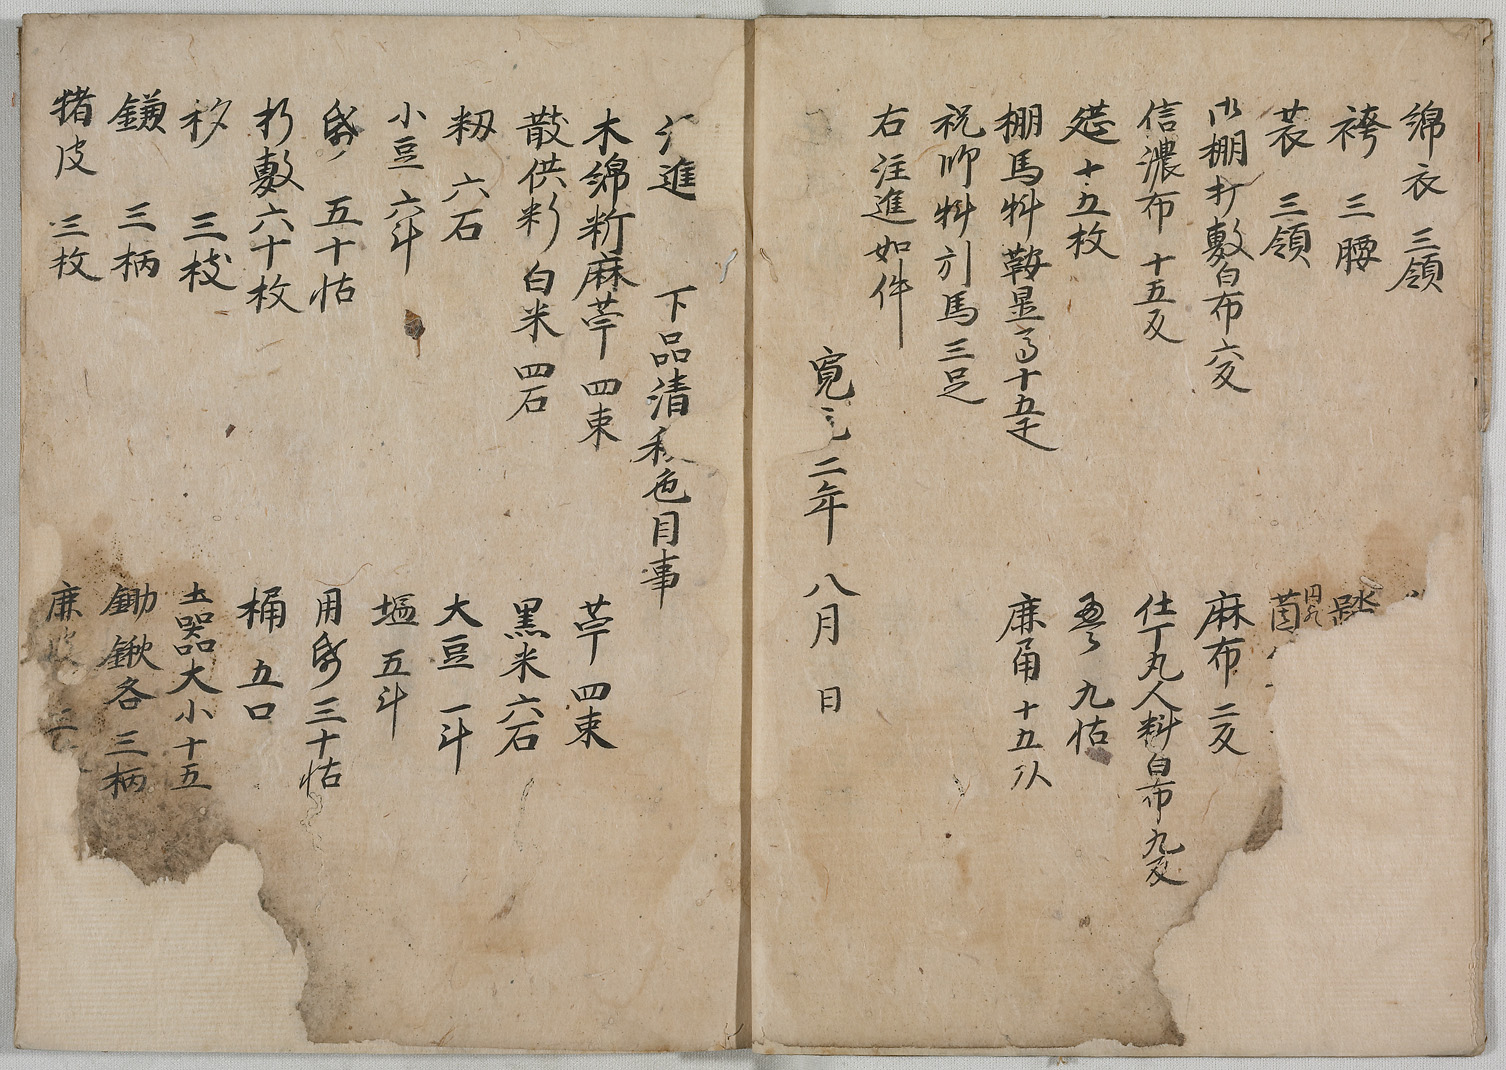 綿衣 三領
袴 三腰
裳 三領 茵
御棚打敷白布六反 麻布 二反
信濃布 十五反 仕丁丸人料白布九反
莚 十五枚 九帖
棚馬料鞍 十五 廉甬 十五
祝師料引馬三疋
右注進如件
寛元二年 八月 日
注進 下品清 色目事
木綿䉼麻苧 四束 苧 四束
散供䉼 白米 四石 黒米 六石
籾 六石 大豆 一斗
小豆 六斗 塩 五斗
帋 五十帖 用帋 三十帖
打敷 六十枚 桶 五口
杉 三枝 土器大小十五
鎌 三柄 鋤鍬各 三柄
猪皮 三枚